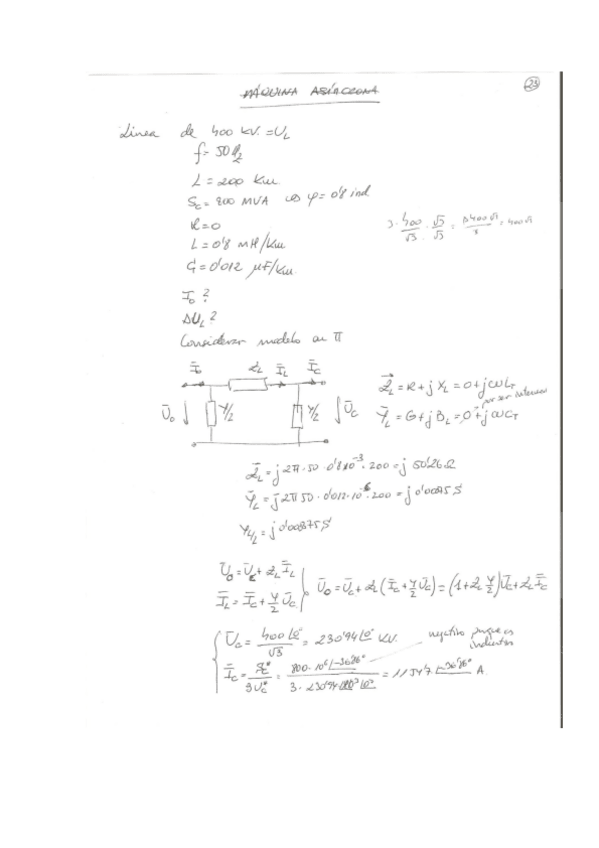 MÁQUINA ASÍNCRONA
23
Línea de 400 KV. = U_L
f = 50 Hz
L = 200 Km.
S_c = 800 MVA cos φ = 0'8 ind
R = 0
L = 0'8 mH/Km
C = 0'012 μF/Km.
3·400/√3 · √3/√3 = 3·400√3/3 = 400√3
I_0 ?
ΔU_L ?
Considerar modelo en π
Ī_0 Z_L Ī_L Ī_C
Ū_0 Y/2 Y/2 Ū_C
Z̄_L = R + j X_L = 0 + j ω L_T
por ser
Ȳ_L = G + j B_L = 0 + j ω C_T
Z̄_L = j 2π · 50 · 0'8·10⁻³ · 200 = j 50'26 Ω
Ȳ_L = j 2π 50 · 0'012·10⁻⁶ · 200 = j 0'00075 S
Y/2_L = j 0'000375 S
Ū_0 = Ū_C + Z_L Ī_L
Ī_L = Ī_C + Y/2 Ū_C
Ū_0 = Ū_C + Z_L (Ī_C + Y/2 Ū_C) = (1 + Z_L Y/2) Ū_C + Z_L Ī_C
Ū_C = 400 ∠0°/√3 = 230'94 ∠0° KV.
negativo porque es inductivo
Ī_C = S_C*/3U_C* = 800·10⁶ ∠-36'86°/3 · 230'94·10³ ∠0° = 1154'7 ∠-36'86° A